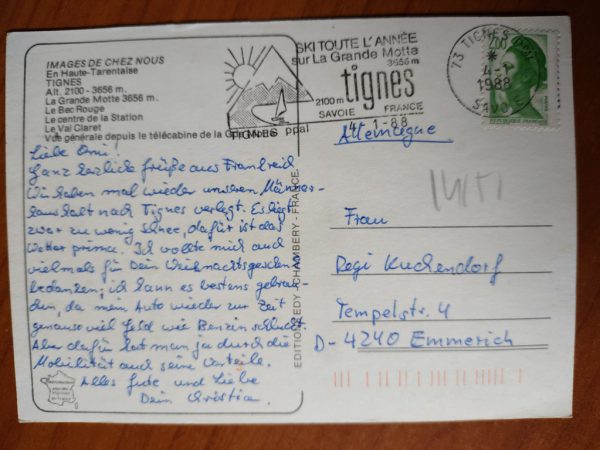 IMAGES DE CHEZ NOUS
En Haute-Tarentaise
TIGNES
Alt. 2100 - 3656 m.
La Grande Motte 3656 m.
Le Bec Rouge
Le centre de la Station
Le Val Claret
Vue générale depuis le télécabine de la
TIGNES ppal
SKI TOUTE L'ANNÉE
sur La Grande Motte
3656 m
tignes
2100 m
SAVOIE FRANCE
1-88
73 TIGNES PPAL
1988
SAVOIE
2,00
REPUBLIQUE FRANCAISE
Liebe Omi!
Ganz herzliche Grüße aus Frankreich
Wir haben mal wieder unseren Männer-
haushalt nach Tignes verlegt. Es liegt
zwar zu wenig Schnee, dafür ist das
Wetter prima. Ich wollte mich auch
vielmals für Dein Weihnachtsgeschenk
bedanken; ich kann es bestens gebrau-
chen, da mein Auto wieder zur Zeit
genauso viel Geld wie Benzin schluckt.
Aber dafür hat man ja durch die
Mobilität auch seine Vorteile.
Alles Gute und Liebe
Dein Christian.
EDITIONS EDY - CHAMBERY - FRANCE.
Allemagne
Frau
Regi Kuchendorf
Tempelstr. 4
D- 4240 Emmerich